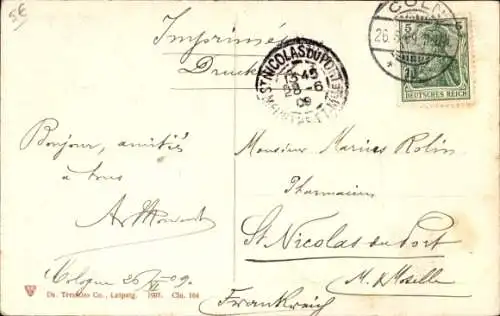 5E
Imprimés
Drucks
CÖLN
26.6
5 5
DEUTSCHES REICH
ST NICOLAS DU PORT
MEURTHE ET MLLE
45
28 - 6
09
Bonjour, amitiés
à tous
Cologne 26/VI 09.
Monsieur Marius Rolin
Pharmacien
St. Nicolas du Port
M. & Moselle
Frankreich
Dr. Trenkler Co., Leipzig. 1907. Cln. 104